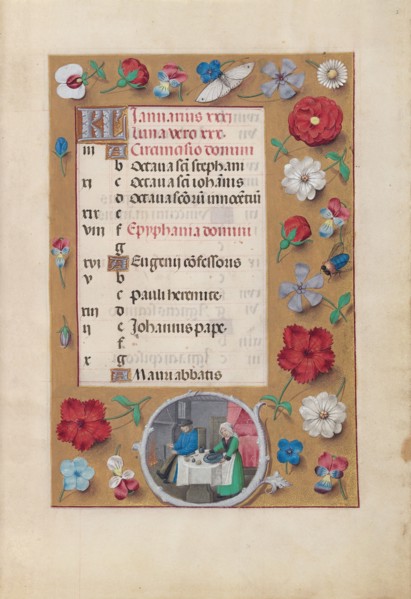 KL Januarius xxxj
Luna vero xxx.
iii A Circumcisio domini
b Octava sci stephani
xi c Octava sci iohanis
d Octava scorū innocētiū
xix e
viii f Epyphania domini
g
xvi A Eugenii cōfessoris
v b
c Pauli heremite.
xiii d
ii e Johannis pape.
f
x g
A Mauri abbatis